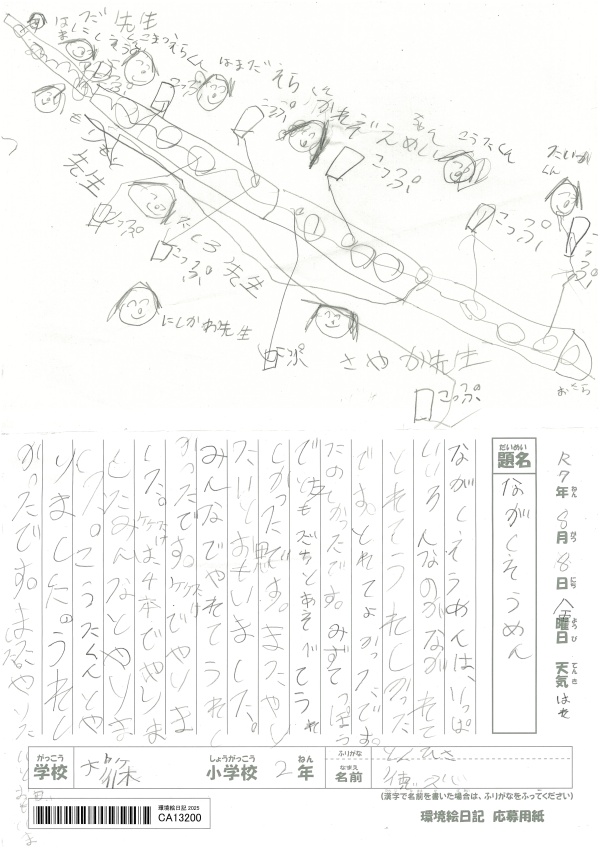 はまだ先生
こうえんくん
はまだそらくん
こっぷ
こっぷ
先生
こっぷ
こっぷ
先生
にしかわ先生
さやか先生
こっぷ
こっぷ
こうたくん
こっぷ
たいがくん
こっぷ
R7年8月8日 曜日 天気 はれ
ねん がつ にち よう び てん き
だいめい
題名
ながしそうめん
ながしそうめんは、いっぱ
いいろんなのがながれて
とれてうれしかった
です。とれてよかったです。
たのしかったです。みずてっぽう
でともだちとあそべてうれ
しかったです。またやり
たいとおもいました。
みんなでやれてうれし
かったです。竹でやりま
した。竹は4本でやりま
した。みんなとやりま
した。こうたくんとや
りました。うれし
かったです。またやりた
いとおもいま
がっこう
学校
しょうがっこう
小学校
2年
ねん
ふりがな
なまえ
名前
(漢字で名前を書いた場合は、ふりがなをふってください)
環境絵日記 2025
CA13200
環境絵日記 応募用紙